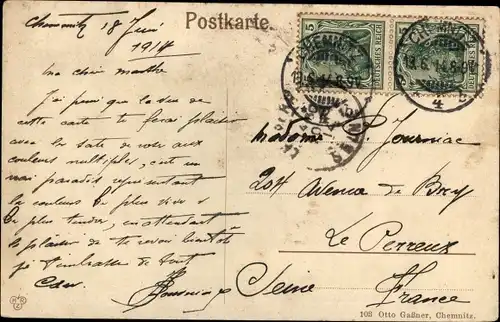 Postkarte
Chemnitz 18 Juin
1914
5 5
DEUTSCHES REICH
CHEMNITZ CHEMNITZ
18.6.14.
4
ma chère Marthe
J'ai pensé que la vue de
cette carte te ferai plaisir
avec les
couleurs multiples, c'est un
vrai paradis représentant
la couleurs de plus vives
de plus tendre, en attendant
le plaisir de te revoir bientôt
je t'embrasse de tout
Madame P. Fourniac
204 Avenue de Bry
Le Perreux
Seine
France
103 Otto Gaßner, Chemnitz.